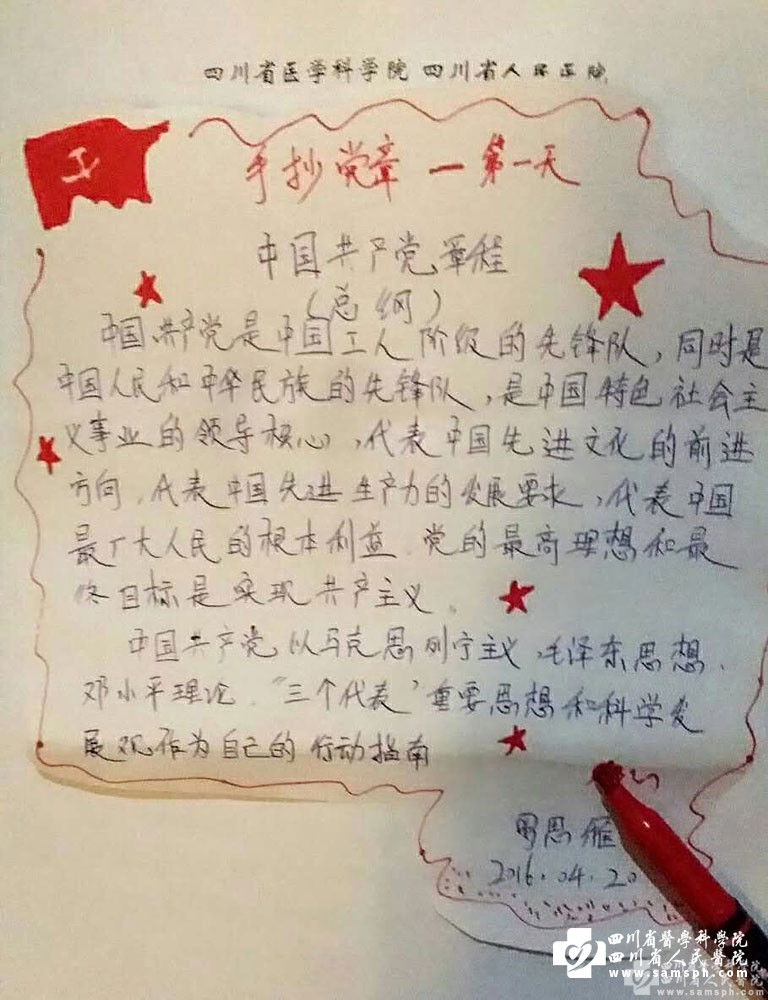 四川省医学科学院 四川省人民医院
手抄党章—第一天
中国共产党章程
（总纲）
中国共产党是中国工人阶级的先锋队，同时是
中国人民和中华民族的先锋队，是中国特色社会主
义事业的领导核心，代表中国先进文化的前进
方向，代表中国先进生产力的发展要求，代表中国
最广大人民的根本利益。党的最高理想和最
终目标是实现共产主义。
中国共产党以马克思列宁主义、毛泽东思想、
邓小平理论、“三个代表”重要思想和科学发
展观作为自己的行动指南
思
2016.04.20
四川省醫學科學院
四川省人民醫院
www.samsph.com
四川省醫學科學院
四川省人民醫院
www.samsph.com